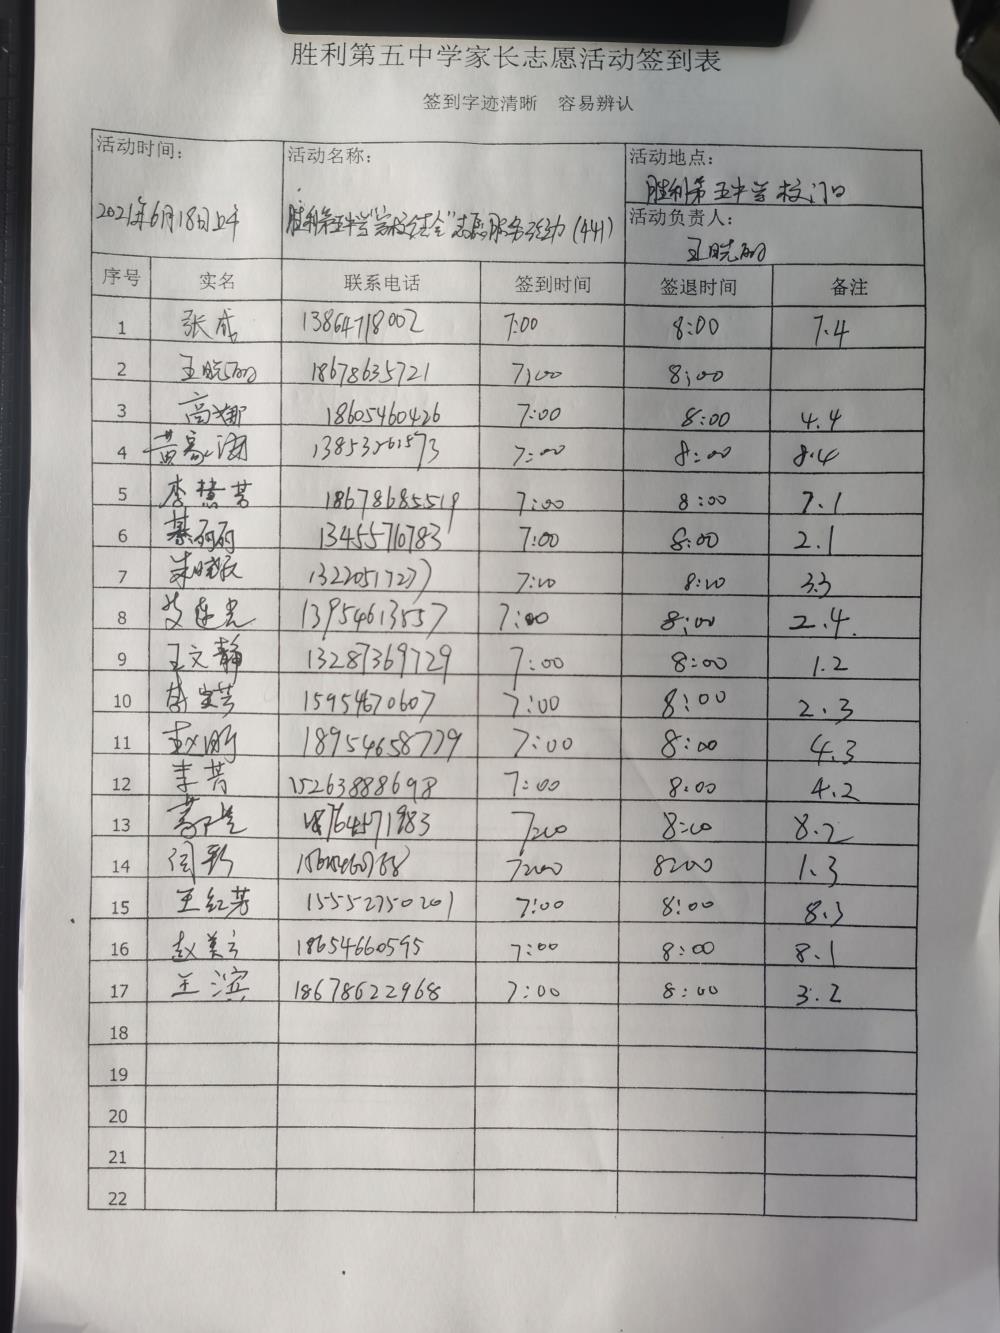 胜利第五中学家长志愿活动签到表
签到字迹清晰 容易辨认
活动时间： 活动名称： 活动地点：
胜利第五中学校门口
2021年6月18日上午 胜利第五中学"家校社会"志愿服务活动(441) 活动负责人：
王晓丽
序号 实名 联系电话 签到时间 签退时间 备注
1 张 13864718002 7:00 8:00 7.4
2 王晓丽 18678635721 7:00 8:00
3 高娜 18605460426 7:00 8:00 4.4
4 黄 13853261573 7:00 8:00 8.4
5 李慧芳 18678685519 7:00 8:00 7.1
6 綦丽丽 13455710783 7:00 8:00 2.1
7 朱晓 13220517277 7:00 8:00 3.3
8 13954613557 7:00 8:00 2.4.
9 王文静 13287369729 7:00 8:00 1.2
10 15954670607 7:00 8:00 2.3
11 赵 18954658779 7:00 8:00 4.3
12 李芳 15263888698 7:00 8:00 4.2
13 18764571983 7:00 8:00 8.2
14 闫 7:00 8:00 1.3
15 王红芳 15552750201 7:00 8:00 8.3
16 赵美 18654660595 7:00 8:00 8.1
17 王滨 18678622968 7:00 8:00 3.2
18
19
20
21
22